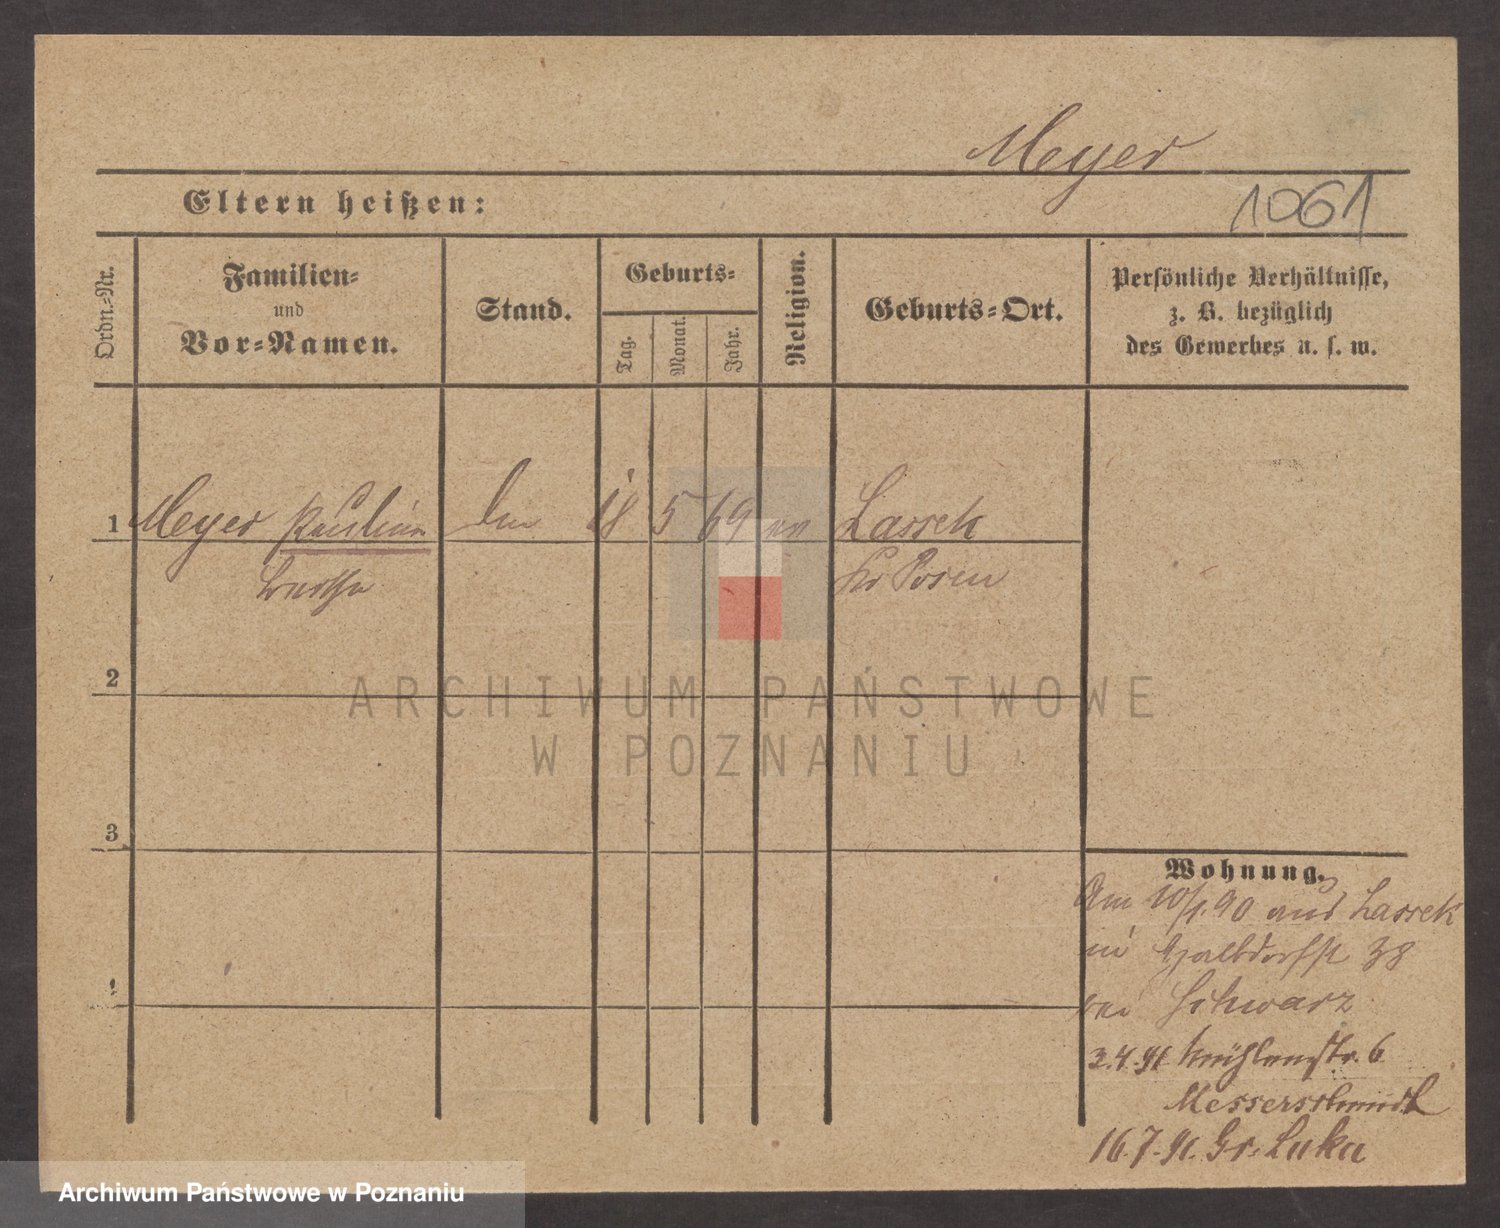 Meyer
Eltern heißen:
1061
Ordn.-Nr.
Familien-
und
Vor-Namen.
Stand.
Geburts-
Tag.
Monat.
Jahr.
Religion.
Geburts-Ort.
Persönliche Verhältnisse,
z. B. bezüglich
des Gewerbes u. s. w.
1 Meyer Pauline 18 5 69 ev Lassek
Bertha Kr Posen
2
ARCHIWUM PAŃSTWOWE
W POZNANIU
3
Wohnung.
Am 10/1.90 aus Lassek
in 38
bei Schwarz
2.4.91 Mühlenstr. 6
Messerschmidt
16.7.91. Gr. Luka
Archiwum Państwowe w Poznaniu